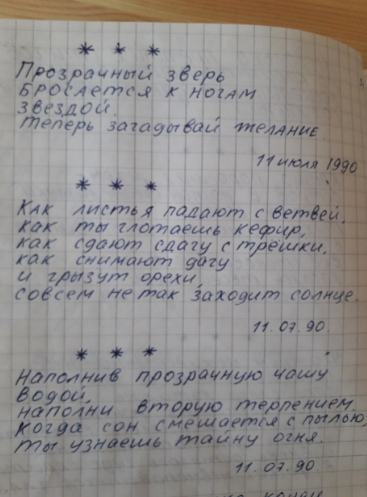 * * *
Прозрачный зверь
бросается к ногам
звездой.
Теперь загадывай желание
11 июля 1990
* * *
Как листья падают с ветвей,
как ты глотаешь кефир,
как сдают сдачу с трешки,
как снимают дачу
и грызут орехи,
совсем не так заходит солнце.
11.07.90.
* * *
Наполнив прозрачную чашу
водой,
наполни вторую терпением.
Когда сон смешается с пылью,
ты узнаешь тайну огня.
11.07.90